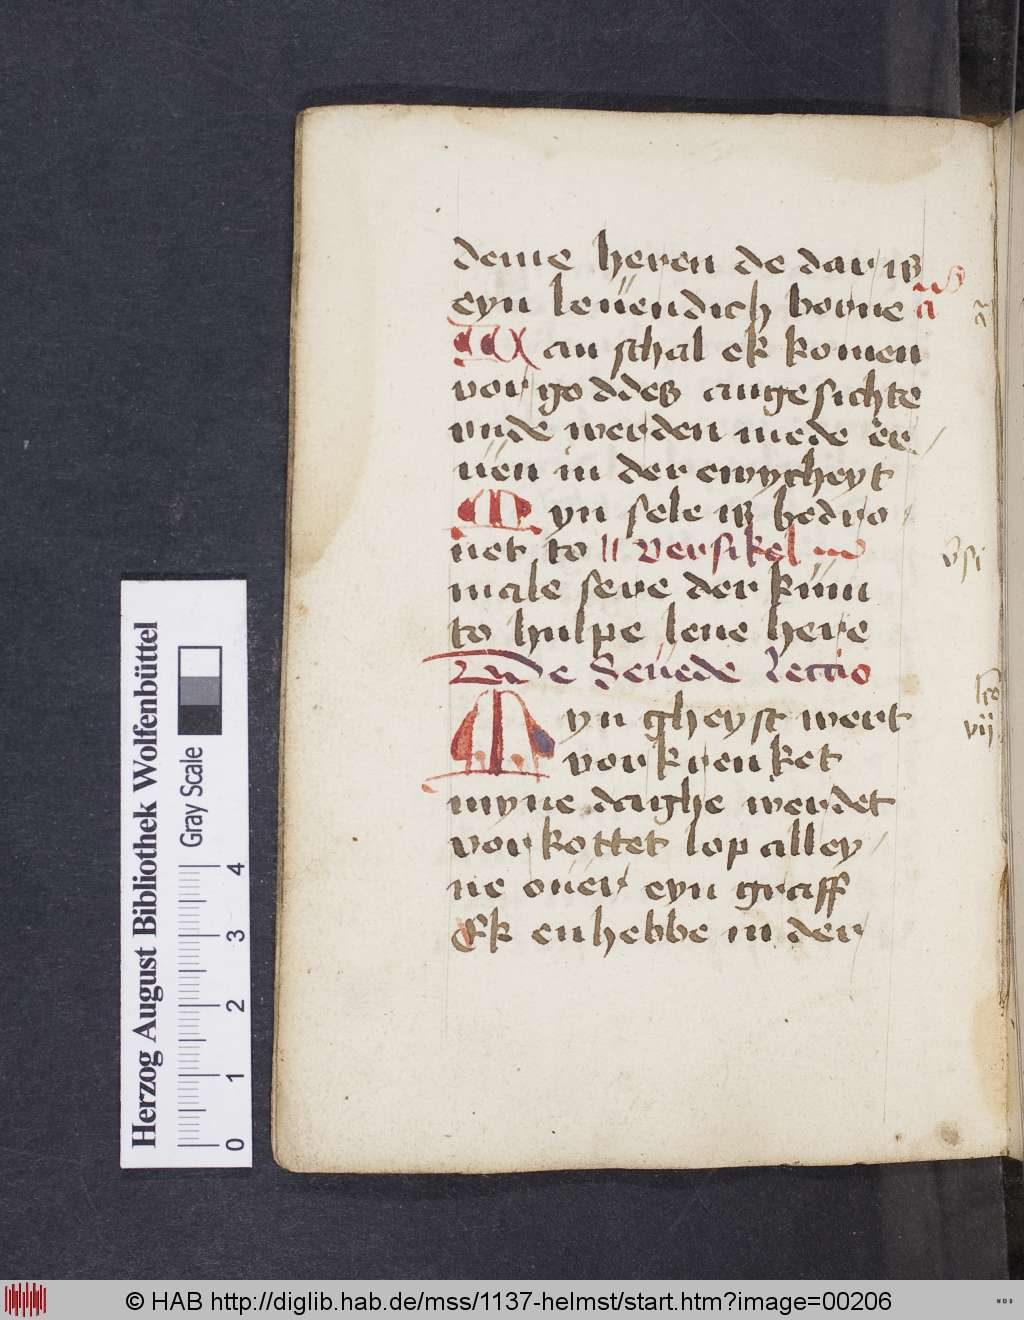 deme heren de dar is
eyn leuendich borne a
Wan schal ek komen
vor goddes angesichte
vnde werden mede er
uen in der ewycheyt
Myn sele is bedro
uet to || versikel
male sere der kum
to hulpe leue here
De seuede lectio
Myn gheyst wert
vorkrenket
myne daghe werdet
vorkottet lop alley
ne ouer eyn graff
Ek en hebbe in der
a
vsi
lco
vij
Herzog August Bibliothek Wolfenbüttel
Gray Scale
0 1 2 3 4
© HAB http://diglib.hab.de/mss/1137-helmst/start.htm?image=00206